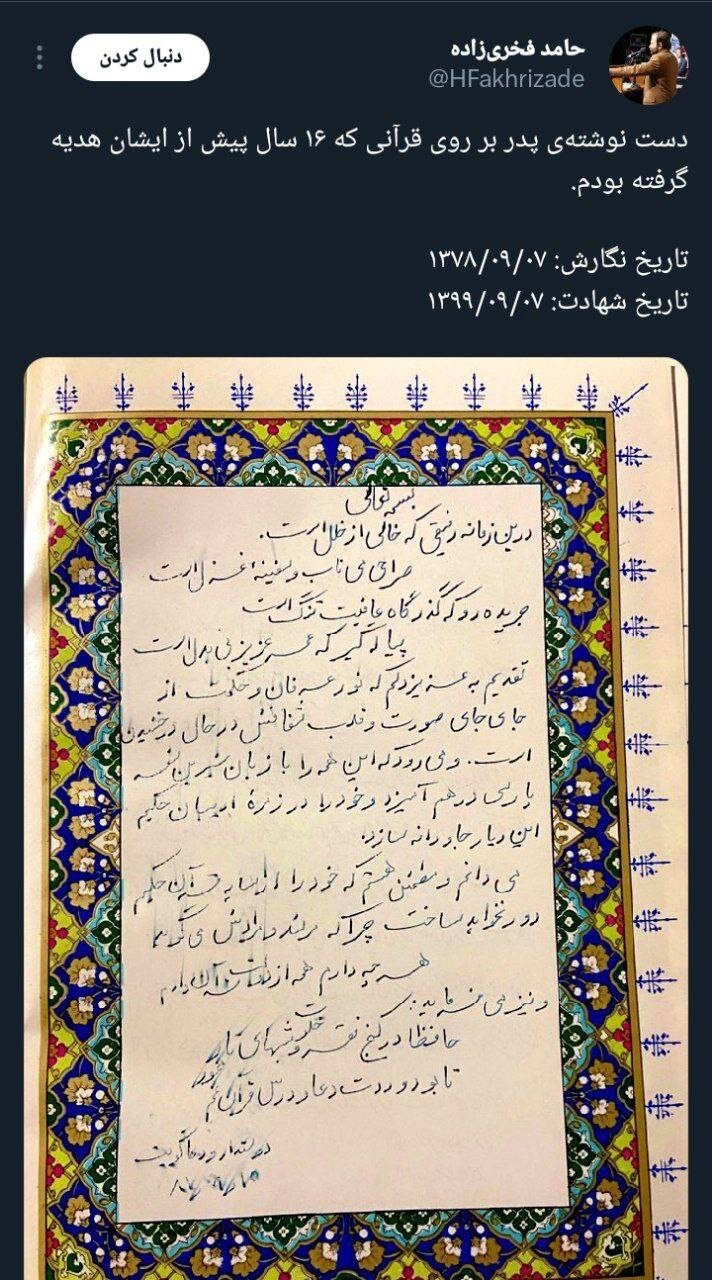 حامد فخری‌زاده
@HFakhrizade
دنبال کردن
دست نوشته‌ی پدر بر روی قرآنی که ۱۶ سال پیش از ایشان هدیه
گرفته بودم.
تاریخ نگارش: ۱۳۷۸/۰۹/۰۷
تاریخ شهادت: ۱۳۹۹/۰۹/۰۷
بسمه تعالی
درین زمانه رفیقی که خالی از خلل است.
صراحی می ناب و سفینه غزل است
جریده رو که گذرگاه عافیت تنگ است
پیاله گیر که عمر عزیز بی بدل است
تقدیم به عزیزدلم که نور عرفان و حکمت از
جای جای صورت و قلب شفافش در حال درخشیدن
است. و می رود که این همه را با زبان شیرین
پارسی در هم آمیزد و خود را در زمرهٔ ادیبان حکیم
این دیار جاودانه سازد.
می دانم و مطمئن هستم که خود را از قرآن حکیم
دور نخواهد ساخت چرا که می گوید
هر چه دارم همه از دولت قرآن دارم
و نیز می فرماید:
حافظا در کنج فقر و خلوت شبهای تار
تا بود وردت دعا و درس قرآن غم مخور
دوستدار و دعاگویت